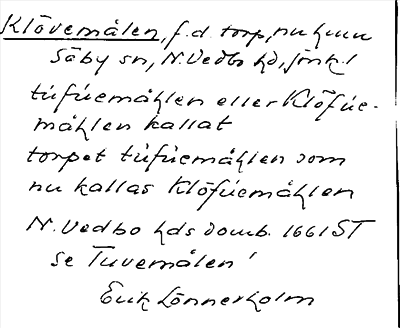 Klövemålen, f.d. torp, nu hmn
Säby sn, N. Vedbo hd, Jönk. l
túfúemåhlen eller Klöfúe-
måhlen kallat
torpet túfúemåhlen som
nu kallas Klöfúemåhlen
N. Vedbo hds domb. 1661 ST
se Tuvemålen!
Erik Lönnerholm